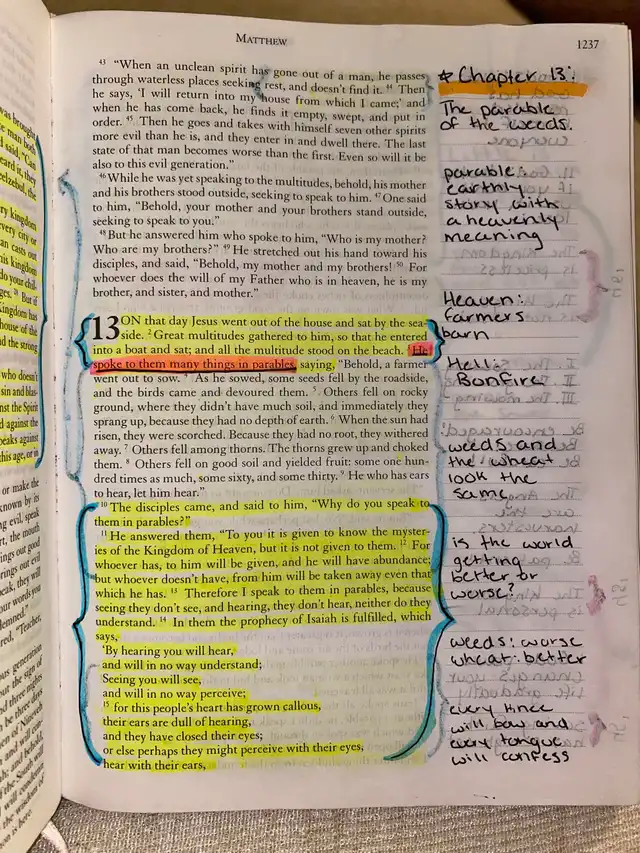 MATTHEW
1237
43 “When an unclean spirit has gone out of a man, he passes
through waterless places seeking rest, and doesn’t find it. 44 Then
he says, ‘I will return into my house from which I came;’ and
when he has come back, he finds it empty, swept, and put in
order. 45 Then he goes and takes with himself seven other spirits
more evil than he is, and they enter in and dwell there. The last
state of that man becomes worse than the first. Even so will it be
also to this evil generation.”
46 While he was yet speaking to the multitudes, behold, his mother
and his brothers stood outside, seeking to speak to him. 47 One said
to him, “Behold, your mother and your brothers stand outside,
seeking to speak to you.”
48 But he answered him who spoke to him, “Who is my mother?
Who are my brothers?” 49 He stretched out his hand toward his
disciples, and said, “Behold, my mother and my brothers! 50 For
whoever does the will of my Father who is in heaven, he is my
brother, and sister, and mother.”
13 ON that day Jesus went out of the house and sat by the sea-
side. 2 Great multitudes gathered to him, so that he entered
into a boat and sat; and all the multitude stood on the beach. 3 He
spoke to them many things in parables, saying, “Behold, a farmer
went out to sow. 4 As he sowed, some seeds fell by the roadside,
and the birds came and devoured them. 5 Others fell on rocky
ground, where they didn’t have much soil, and immediately they
sprang up, because they had no depth of earth. 6 When the sun had
risen, they were scorched. Because they had no root, they withered
away. 7 Others fell among thorns. The thorns grew up and choked
them. 8 Others fell on good soil and yielded fruit: some one hun-
dred times as much, some sixty, and some thirty. 9 He who has ears
to hear, let him hear.”
10 The disciples came, and said to him, “Why do you speak to
them in parables?”
11 He answered them, “To you it is given to know the myster-
ies of the Kingdom of Heaven, but it is not given to them. 12 For
whoever has, to him will be given, and he will have abundance;
but whoever doesn’t have, from him will be taken away even that
which he has. 13 Therefore I speak to them in parables, because
seeing they don’t see, and hearing, they don’t hear, neither do they
understand. 14 In them the prophecy of Isaiah is fulfilled, which
says,
‘By hearing you will hear,
and will in no way understand;
Seeing you will see,
and will in no way perceive;
15 for this people’s heart has grown callous,
their ears are dull of hearing,
and they have closed their eyes;
or else perhaps they might perceive with their eyes,
hear with their ears,
* Chapter 13:
The parable
of the weeds.
parable:
earthly
story with
a heavenly
meaning
Heaven:
farmers
barn
Hell:
Bonfire
weeds and
the wheat
look the
same
is the world
getting
better or
worse?
weeds: worse
wheat: better
every knee
will bow and
every tongue
will confess